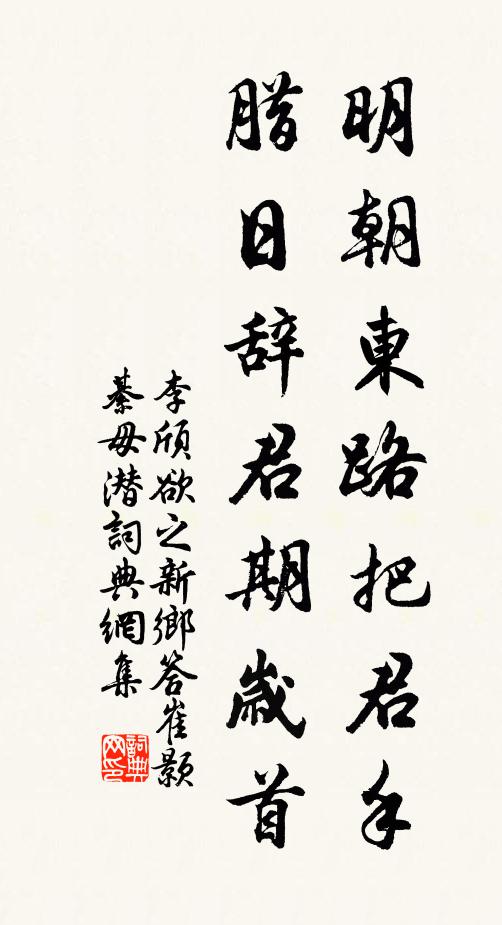 明朝東路把君手
腊日辞君期歲首
李頎欲之新鄉答崔顥
綦毋潜詞典網集
詞典网印